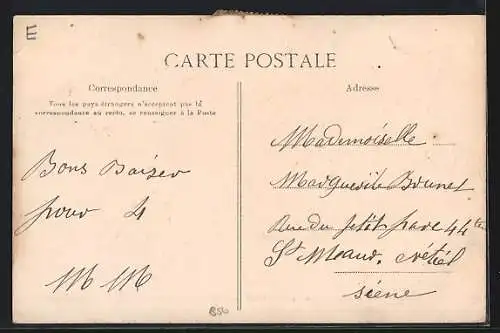 E
CARTE POSTALE
Correspondance
Tous les pays étrangers n'acceptent pas la
correspondance au recto, se renseigner à la Poste
Bons Baiser
pour 4
M M
Adresse
Mademoiselle
Marguerite Brunet
Rue du petit parc 44
St Maur. Créteil
Seine